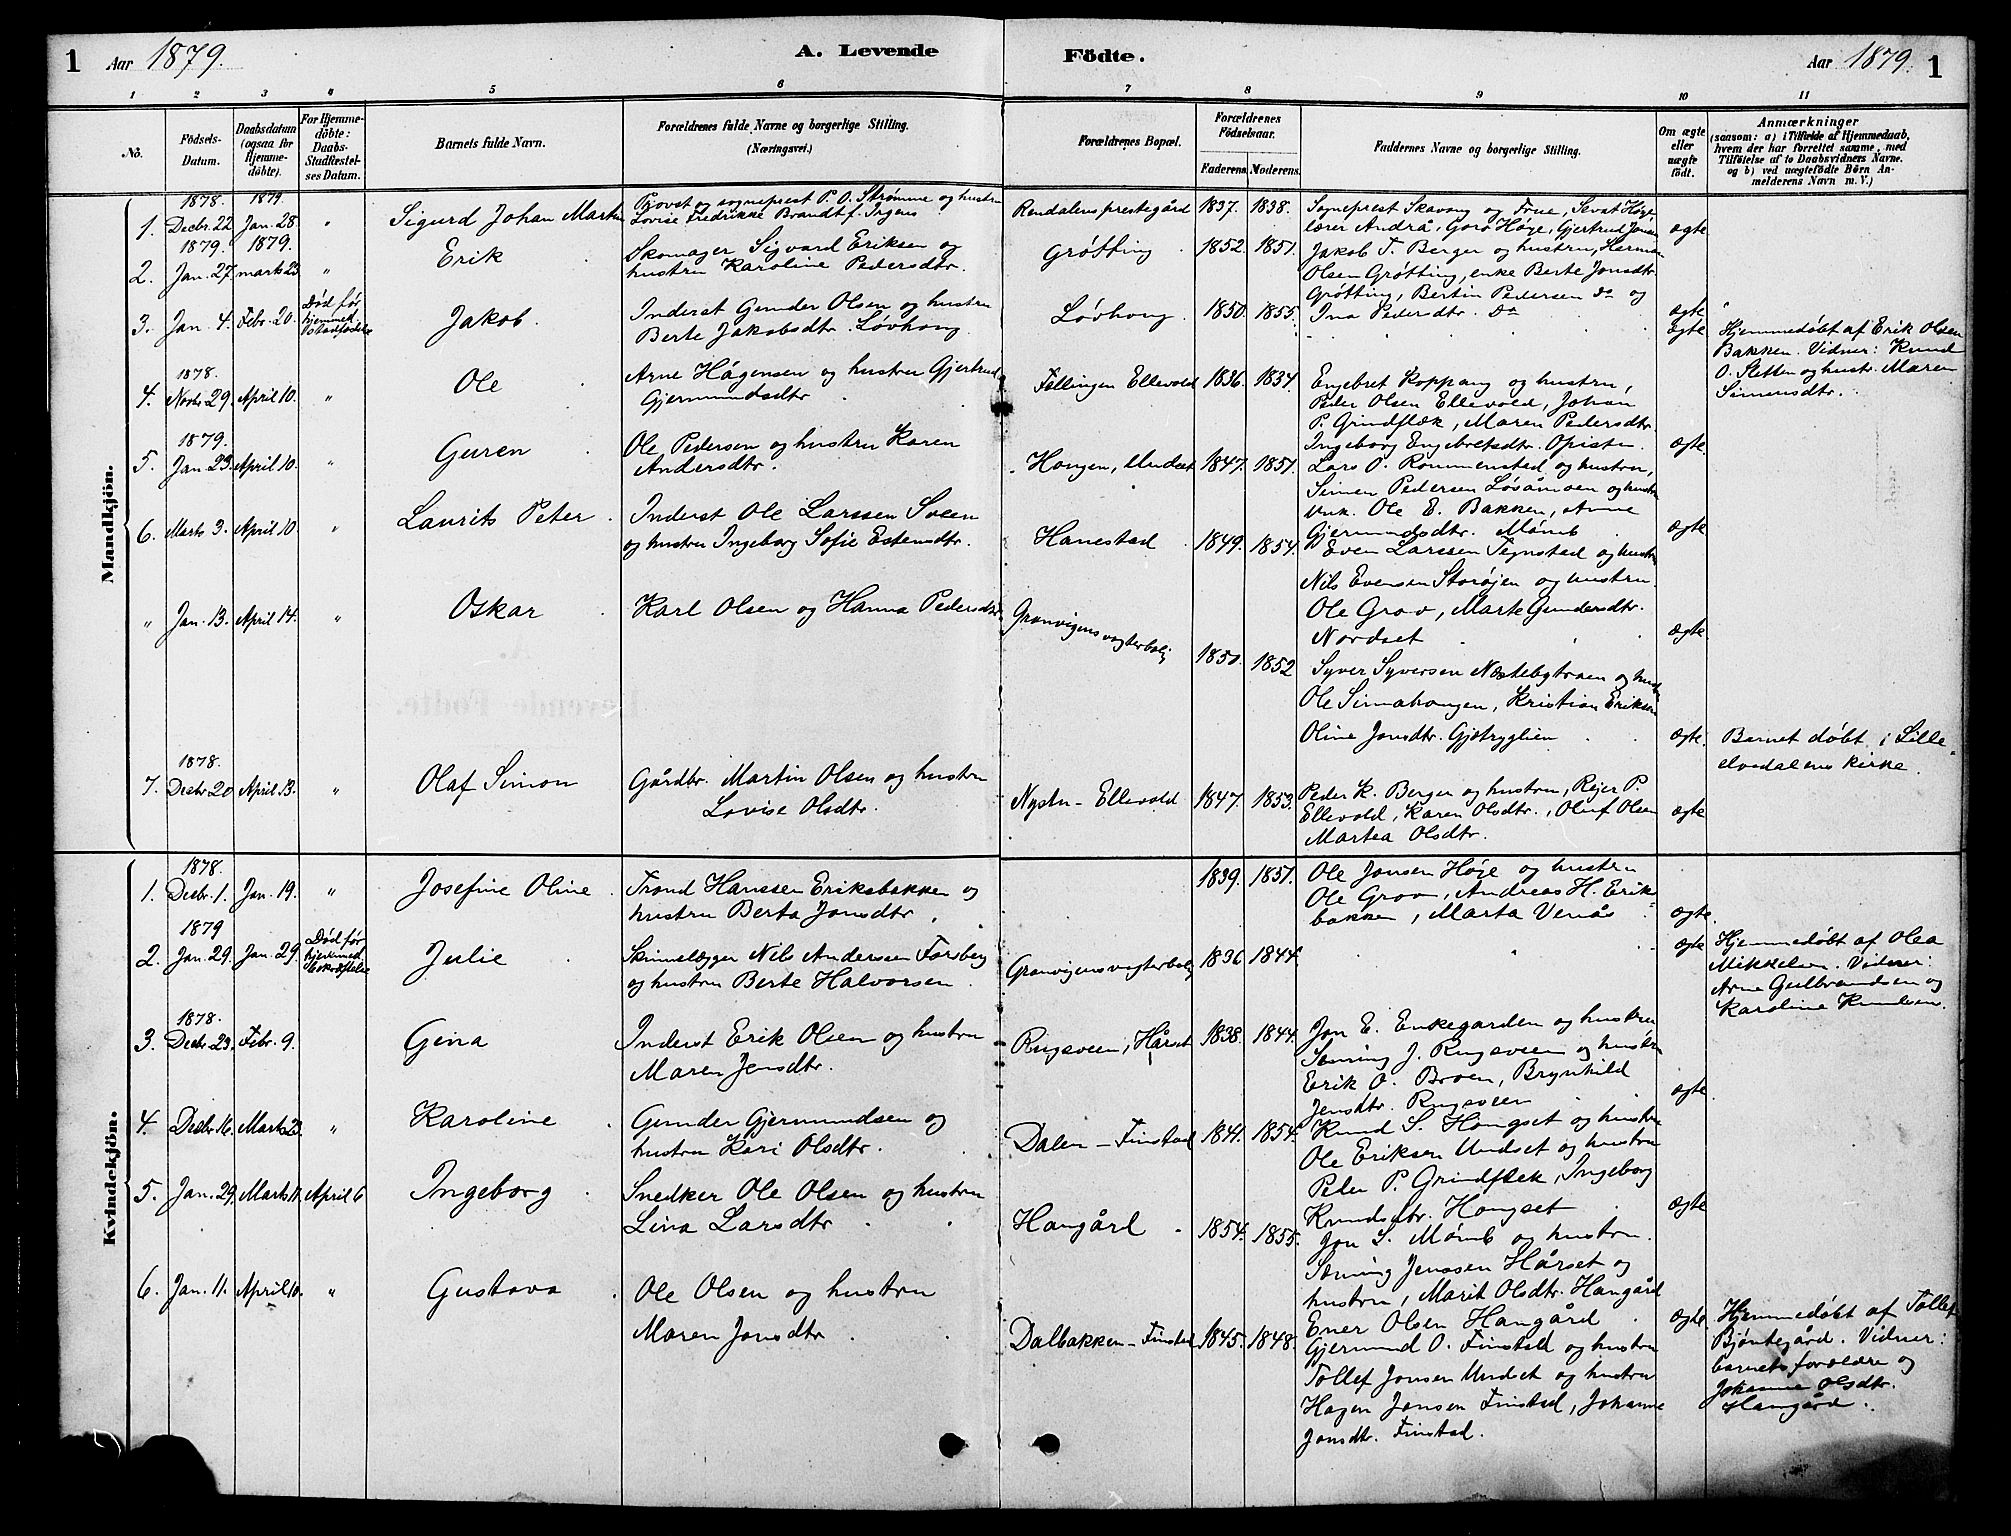 1 Aar 1879. A. Levende Födte. Aar 1879. 1
1 2 3 4 5 6 7 8 9 10 11
No.
Födsels-
Datum.
Daabsdatum
(ogsaa for
Hjemme-
döbte).
For Hjemme-
döbte:
Daabs-
Stadfæstel-
ses Datum.
Barnets fulde Navn.
Forældrenes fulde Navne og borgerlige Stilling.
(Næringsvei.)
Forældrenes Bopæl.
Forældrenes
Födselsaar.
Faderens. Moderens.
Faddernes Navne og borgerlige Stilling.
Om ægte
eller
uægte
födt.
Anmærkninger
(saasom: a) i Tilfælde af Hjemmedaab,
hvem der har forrettet samme, med
Tilföielse af to Daabsvidners Navne.
og b) ved uægtefödte Börn An-
melderens Navn m. V.)
Mandkjön.
1878. 1879.
1. Decbr. 22 Jan. 28. " Sigurd Johan Martin
Provst og sogneprest P. O. Strømme og hustru
Lovise Fredrikke Brandt f. Irgens
Rendalens prestegård 1837. 1838.
Sogneprest Skavang og Frue, Sevat Høye
lærer Andrå, Goro Høye, Gjertrud Jonsen
ægte
1879. 1879.
2. Jan. 27. marts 23 " Erik
Skomager Sigvard Eriksen og
hustru Karoline Pedersdtr.
Grøtting 1852. 1851.
Jakob T. Berger og hustru, Herman
Olsen Grøtting, enke Berte Jonsdtr.
Grøtting, Bertin Pedersen Do og
Ina Pedersdtr. Do
ægte
3. Jan. 4. Febr. 20. Død før
hjemmed.
stadfæstelse
Jakob.
Inderst Gunder Olsen og hustru
Berte Jakobsdtr. Løvhaug.
Løvhaug. 1850. 1855.
ægte
Hjemmedøbt af Erik Olsen
Bakken. Vidner: Knud
O. Sletten og hustr. Maren
Simensdtr.
1878.
4. Novbr. 29. April 10. " Ole
Arne Hågensen og hustru Gjertrud
Gjermundsdtr.
Fellingen Ellevold 1836. 1834.
Engebret Koppang og hustru,
Peder Olsen Ellevold, Johan
P. Grindflæk, Maren Pedersdtr.
Ingeborg Engebretsdtr. Opistu.
ægte.
1879.
5. Jan. 23. April 10. " Guren
Ole Pedersen og hustru Karen
Andersdtr.
Haugen, Undset 1847. 1851.
Lars O. Rommenstad og hustru,
Simen Pedersen Løsåmoen og hustru
Unk. Ole E. Bakken, Anne
Gjermundsdtr. Momb
ægte
6. Marts 3. April 10. " Laurits Peter.
Inderst Ole Larssen Sveen
og hustru Ingeborg Sofie Estensdtr.
Hanestad 1849. 1854.
Even Larssen Tegnstad og hustru
Nils Evensen Storøjen og hustru.
Ole Grov, Marte Gundersdtr.
Nordset
ægte
" Jan. 13. April 14. " Oskar
Karl Olsen og Hanna Pedersdtr.
Granvigens vogterbolig 1850. 1852
Syver Syversen Næstebytrøen og hustru
Ole Sinnahaugen, Kristian Eriksen
Oline Jonsdtr. Gjøtryglien
ægte.
Barnet døbt i Lille-
elvedalens kirke.
1878.
7. Decbr 20 April 13. " Olaf Simon
Gårdbr. Martin Olsen og hustru
Lovise Olsdtr.
Nystu - Ellevold 1847. 1853.
Peder K. Berger og hustru, Rejer P.
Ellevold, Karen Olsdtr., Oluf Olsen
Martea Olsdtr.
ægte
Kvindekjön.
1878.
1. Decbr. 1. Jan. 19. " Josefine Oline.
Trond Hanssen Eriksbakken og
hustru Berta Jonsdtr.
1839. 1851.
Ole Jonsen Høye og hustru
Ole Grov, Andreas H. Erik-
bakken, Marta Venås
ægte
1879
2. Jan. 29. Jan. 29. Død før
hjemmed.
bekræftelse
Julie
Skinnelægger Nils Anderssen Forsberg
og hustru Berte Halvorsen
Granvigens vogterbolig 1836 1844.
ægte
Hjemmedøbt af Olea
Mikkelsen. Vidner:
Arne Gulbrandsen og
Karoline Knudsen.
1878.
3. Decbr. 23. Febr. 9. Gina
Inderst Erik Olsen og hustru
Maren Jensdtr.
Rugsveen, Hårset 1838. 1844.
Jon E. Enkegarden og hustru
Sæming J. Rugsveen og hustru
Erik O. Broen, Brynhild
Jensdtr. Rugsveen
ægte
4. Decbr 16. Marts 23. " Karoline
Gunder Gjermundsen og
hustru Kari Olsdtr.
Dalen - Finstad 1841. 1854.
Knud S. Haugset og hustru
Ole Eriksen Undset og hustru
Peder P. Grindflek, Ingeborg
Knudsdtr. Haugset
ægte
5. Jan. 29. Marts 11. April 6 Ingeborg
Snedker Ole Olsen og hustru
Lina Larsdtr
Hangård 1854. 1855.
Jon S. Momb og hustru.
Sæming Jenssen Hårset og
hustru, Marit Olsdtr. Hangård
Ener Olsen Hangård
ægte
Hjemmedøbt af Tollef
Bjøntegård. Vidner:
barnets forældre og
Johanne Olsdtr.
Hangård.
6. Jan. 11. April 10. " Gustava
Ole Olsen og hustru
Maren Jonsdtr
Dalbakken - Finstad 1845. 1848.
Gjermund O. Finstad og hustru
Tollef Jonsen Undset og hustru
Hagen Jonsen Finstad, Johanne
Jonsdtr. Finstad.